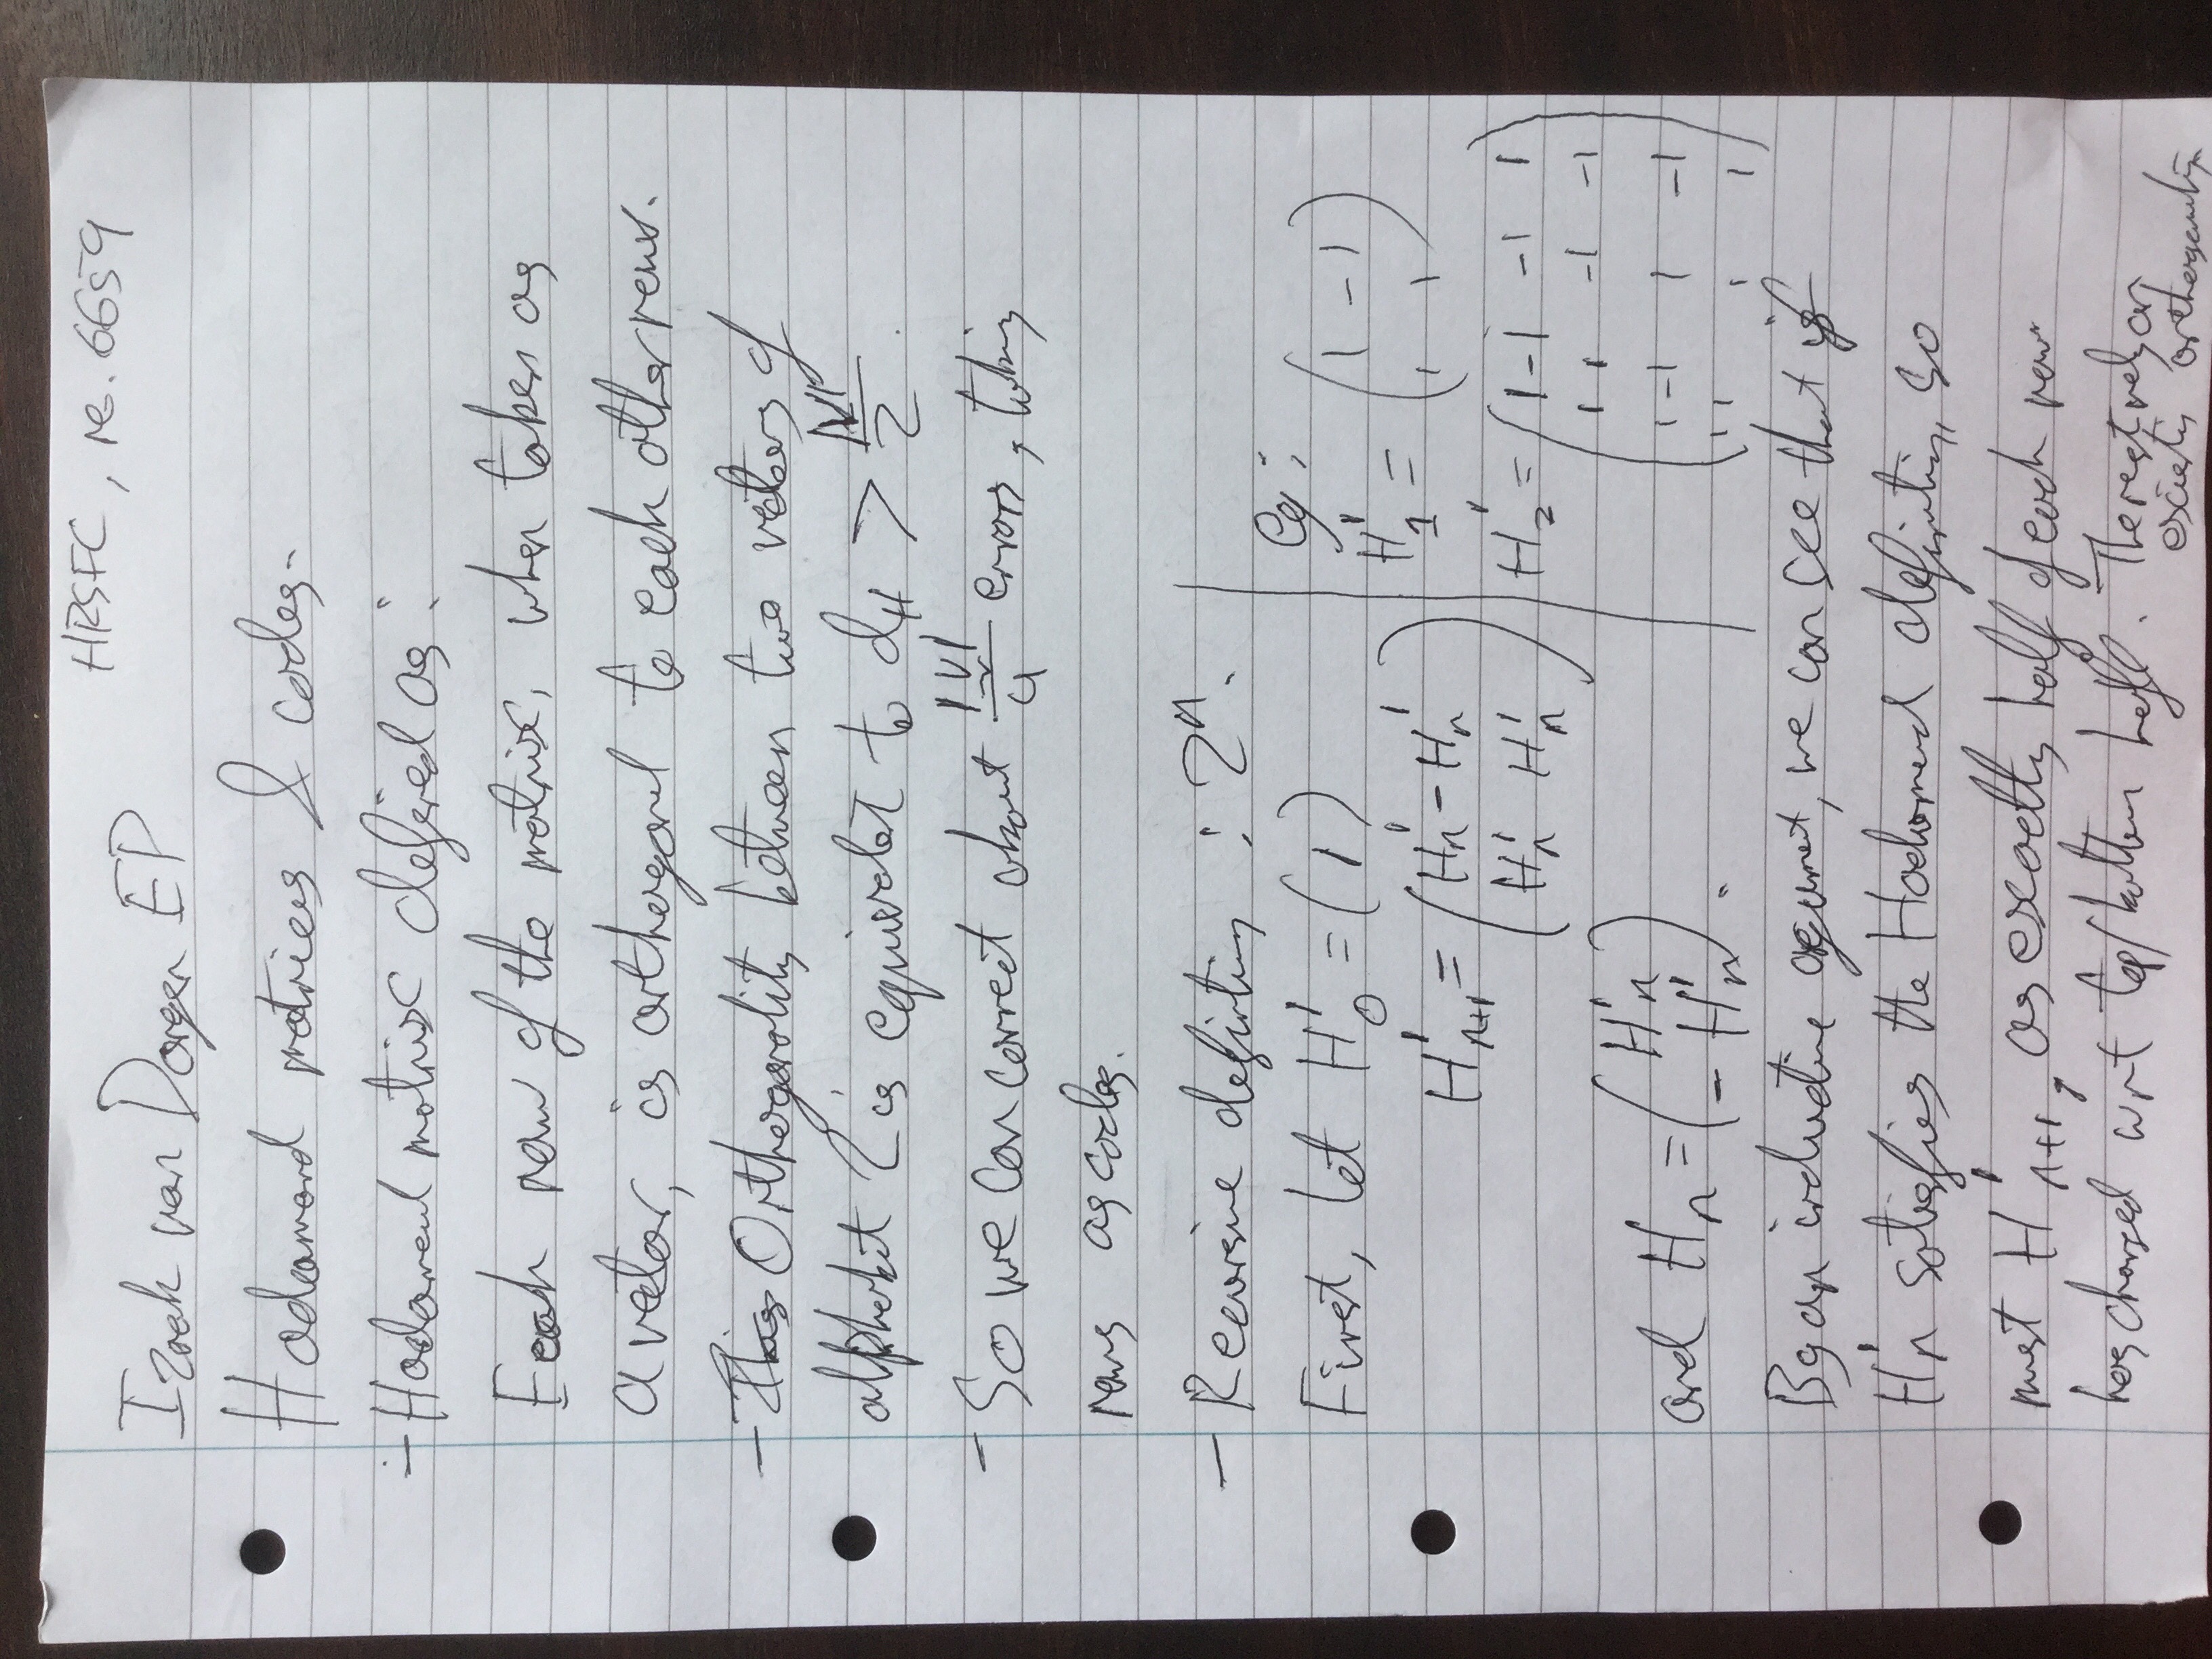 HRSFC, no. 6659
Izaak van Dongen EP
Hadamard matrices & codes.
- Hadamard matrix defined as:
Each row of the matrix, when taken as
a vector, is orthogonal to each other row.
- This Orthogonality between two vectors of
alphabet 2 is equivalent to d_H > |V|/2.
- So we can correct about |V|/4 errors, taking
rows as codes.
- Recursive definition : 2^n.
First, let H'_0 = (1)
H'_{n+1} = (H'_n -H'_n
H'_n H'_n)
and H_n = (H'_n
-H'_n).
eg:
H'_1 = (1 -1
1 1)
H'_2 = (1 -1 -1 1
1 1 -1 -1
1 -1 1 -1
1 1 1 1)
By an inductive argument, we can see that if
H'_n satisfies the Hadamard definition, so
must H'_{n+1}, as exactly half of each row
has changed wrt top/bottom half. The rest rely on
existing orthogonality